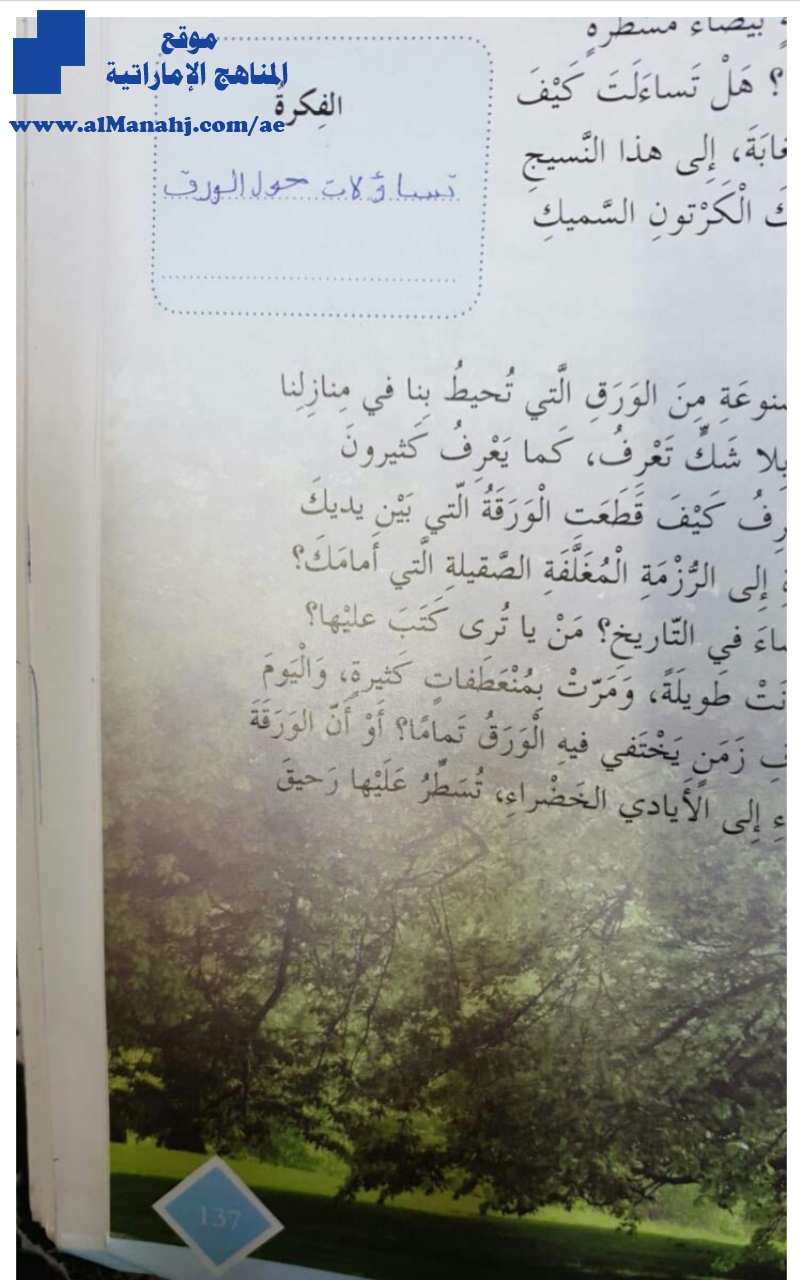 موقع
المناهج الإماراتية
www.alManahj.com/ae
بيضاء مسطرةٍ
؟ هَلْ تَساءَلَتَ كَيْفَ
الفِكرةُ
غابَةَ، إِلى هذا النَّسيجِ
تساؤلات حول الورق
كَ الْكَرْتونِ السَّميكِ
صنوعَةِ مِنَ الوَرَقِ الَّتي تُحيطُ بِنا في مِنازِلِنا
بِلا شَكٍّ تَعْرِفُ، كَما يَعْرِفُ كَثيرونَ
رِفُ كَيْفَ قَطَعَتِ الْوَرَقَةُ الّتي بَيْنِ يديكَ
ةِ إِلى الرُّزْمَةِ الْمُغَلَّفَةِ الصَّقيلةِ الَّتي أَمامَكَ؟
ضاءَ في التّاريخِ؟ مَنْ يا تُرى كَتَبَ عليْها؟
نَتْ طَويلَةً، وَمَرّتْ بِمُنْعَطَفاتٍ كَثيرةٍ، وَالْيَومَ
فِ زَمَنٍ يَخْتَفي فيهِ الْوَرَقُ تَمامًا؟ أَوْ أَنّ الوَرَقَةَ
ءِ إِلى الأَيادي الخَضْراءِ، تُسَطِّرُ عَلَيْها رَحيقَ
137